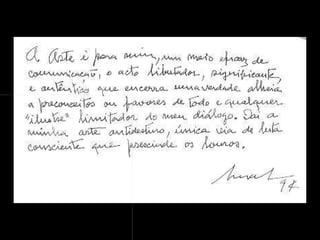 A Arte é para mim, um meio eficaz de
comunicação, o acto libertador, significante,
e autêntico que encerra uma verdade alheia
a preconceitos ou favores de todo e qualquer
"ilustre" limitador do meu diálogo. Daí a
minha arte antidestino, única via de luta
consciente que prescinde os louros.
94